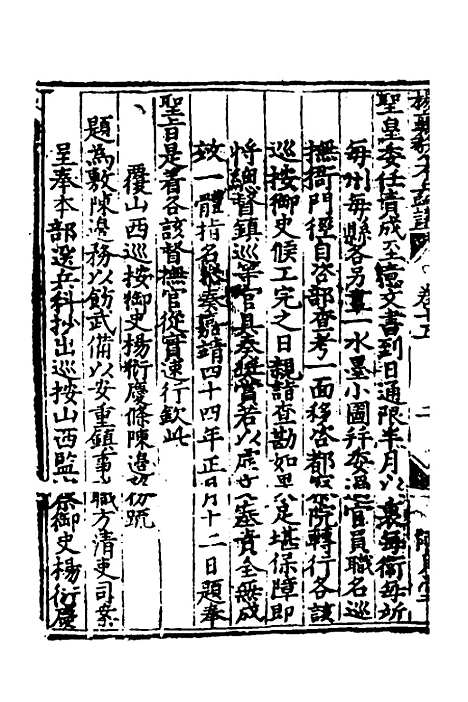 聖皇委任責成至意文書到日通限半月以裏每衛每所
每州每縣各另畫一水墨小圖并委過官員職名巡
撫衙門徑自咨部查考一面移咨都察院轉行各該
巡按御史候工完之日親詣查勘如果足堪保障即
將總督鎮巡等官具奏獎賞若以虛文塞責全無成
效一體指名參奏嘉靖四十四年正月十二日題奉
聖旨是著各該督撫官從實速行欽此
覆山西巡按御史楊衍慶條陳邊務疏
題為敷陳邊務以飭武備以安重鎮事職方清吏司案
呈奉本部送兵科抄出巡按山西監察御史楊衍慶